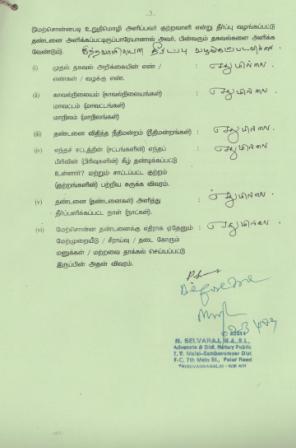 - 3 -
மேற்சொன்னபடி உறுதிமொழி அளிப்பவர் குற்றவாளி என்று தீர்ப்பு வழங்கப்பட்டு
தண்டனை அளிக்கப்பட்டிருப்பாரேயானால் அவர், பின்வரும் தகவல்களை அளிக்க
வேண்டும்.
(i) முதல் தகவல் அறிக்கையின் எண் / : எதுமில்லை.
எண்கள் / வழக்கு எண்.
(ii) காவல்நிலையம் (காவல்நிலையங்கள்) : எதுமில்லை.
மாவட்டம் (மாவட்டங்கள்)
மாநிலம் (மாநிலங்கள்)
(iii) தண்டனை விதித்த நீதிமன்றம் (நீதிமன்றங்கள்) : எதுமில்லை.
(iv) எந்தச் சட்டத்தின் (சட்டங்களின்) எந்தப் : எதுமில்லை.
பிரிவின் (பிரிவுகளின்) கீழ் தண்டிக்கப்பட்டு
உள்ளார்? மற்றும் சாட்டப்பட்ட குற்றம்
(குற்றங்களின்) பற்றிய சுருக்க விவரம்.
(v) தண்டனை (தண்டனைகள்) அளித்து : எதுமில்லை.
தீர்ப்பளிக்கப்பட்ட நாள் (நாட்கள்).
(vi) மேற்சொன்ன தண்டனைக்கு எதிராக ஏதேனும் : எதுமில்லை.
மேற்முறையீடு / சீராய்வு / தடை கோரும்
மனுக்கள் / மற்றவை தாக்கல் செய்யப்பட்டு
இருப்பின் அதன் விவரம்.
Before me
N. SELVARAJ, M.A., B.L.,
Advocate & Dist. Notary Public
T.V. Malai-Sambuvarayar Dist
7th Main St., Polur Road